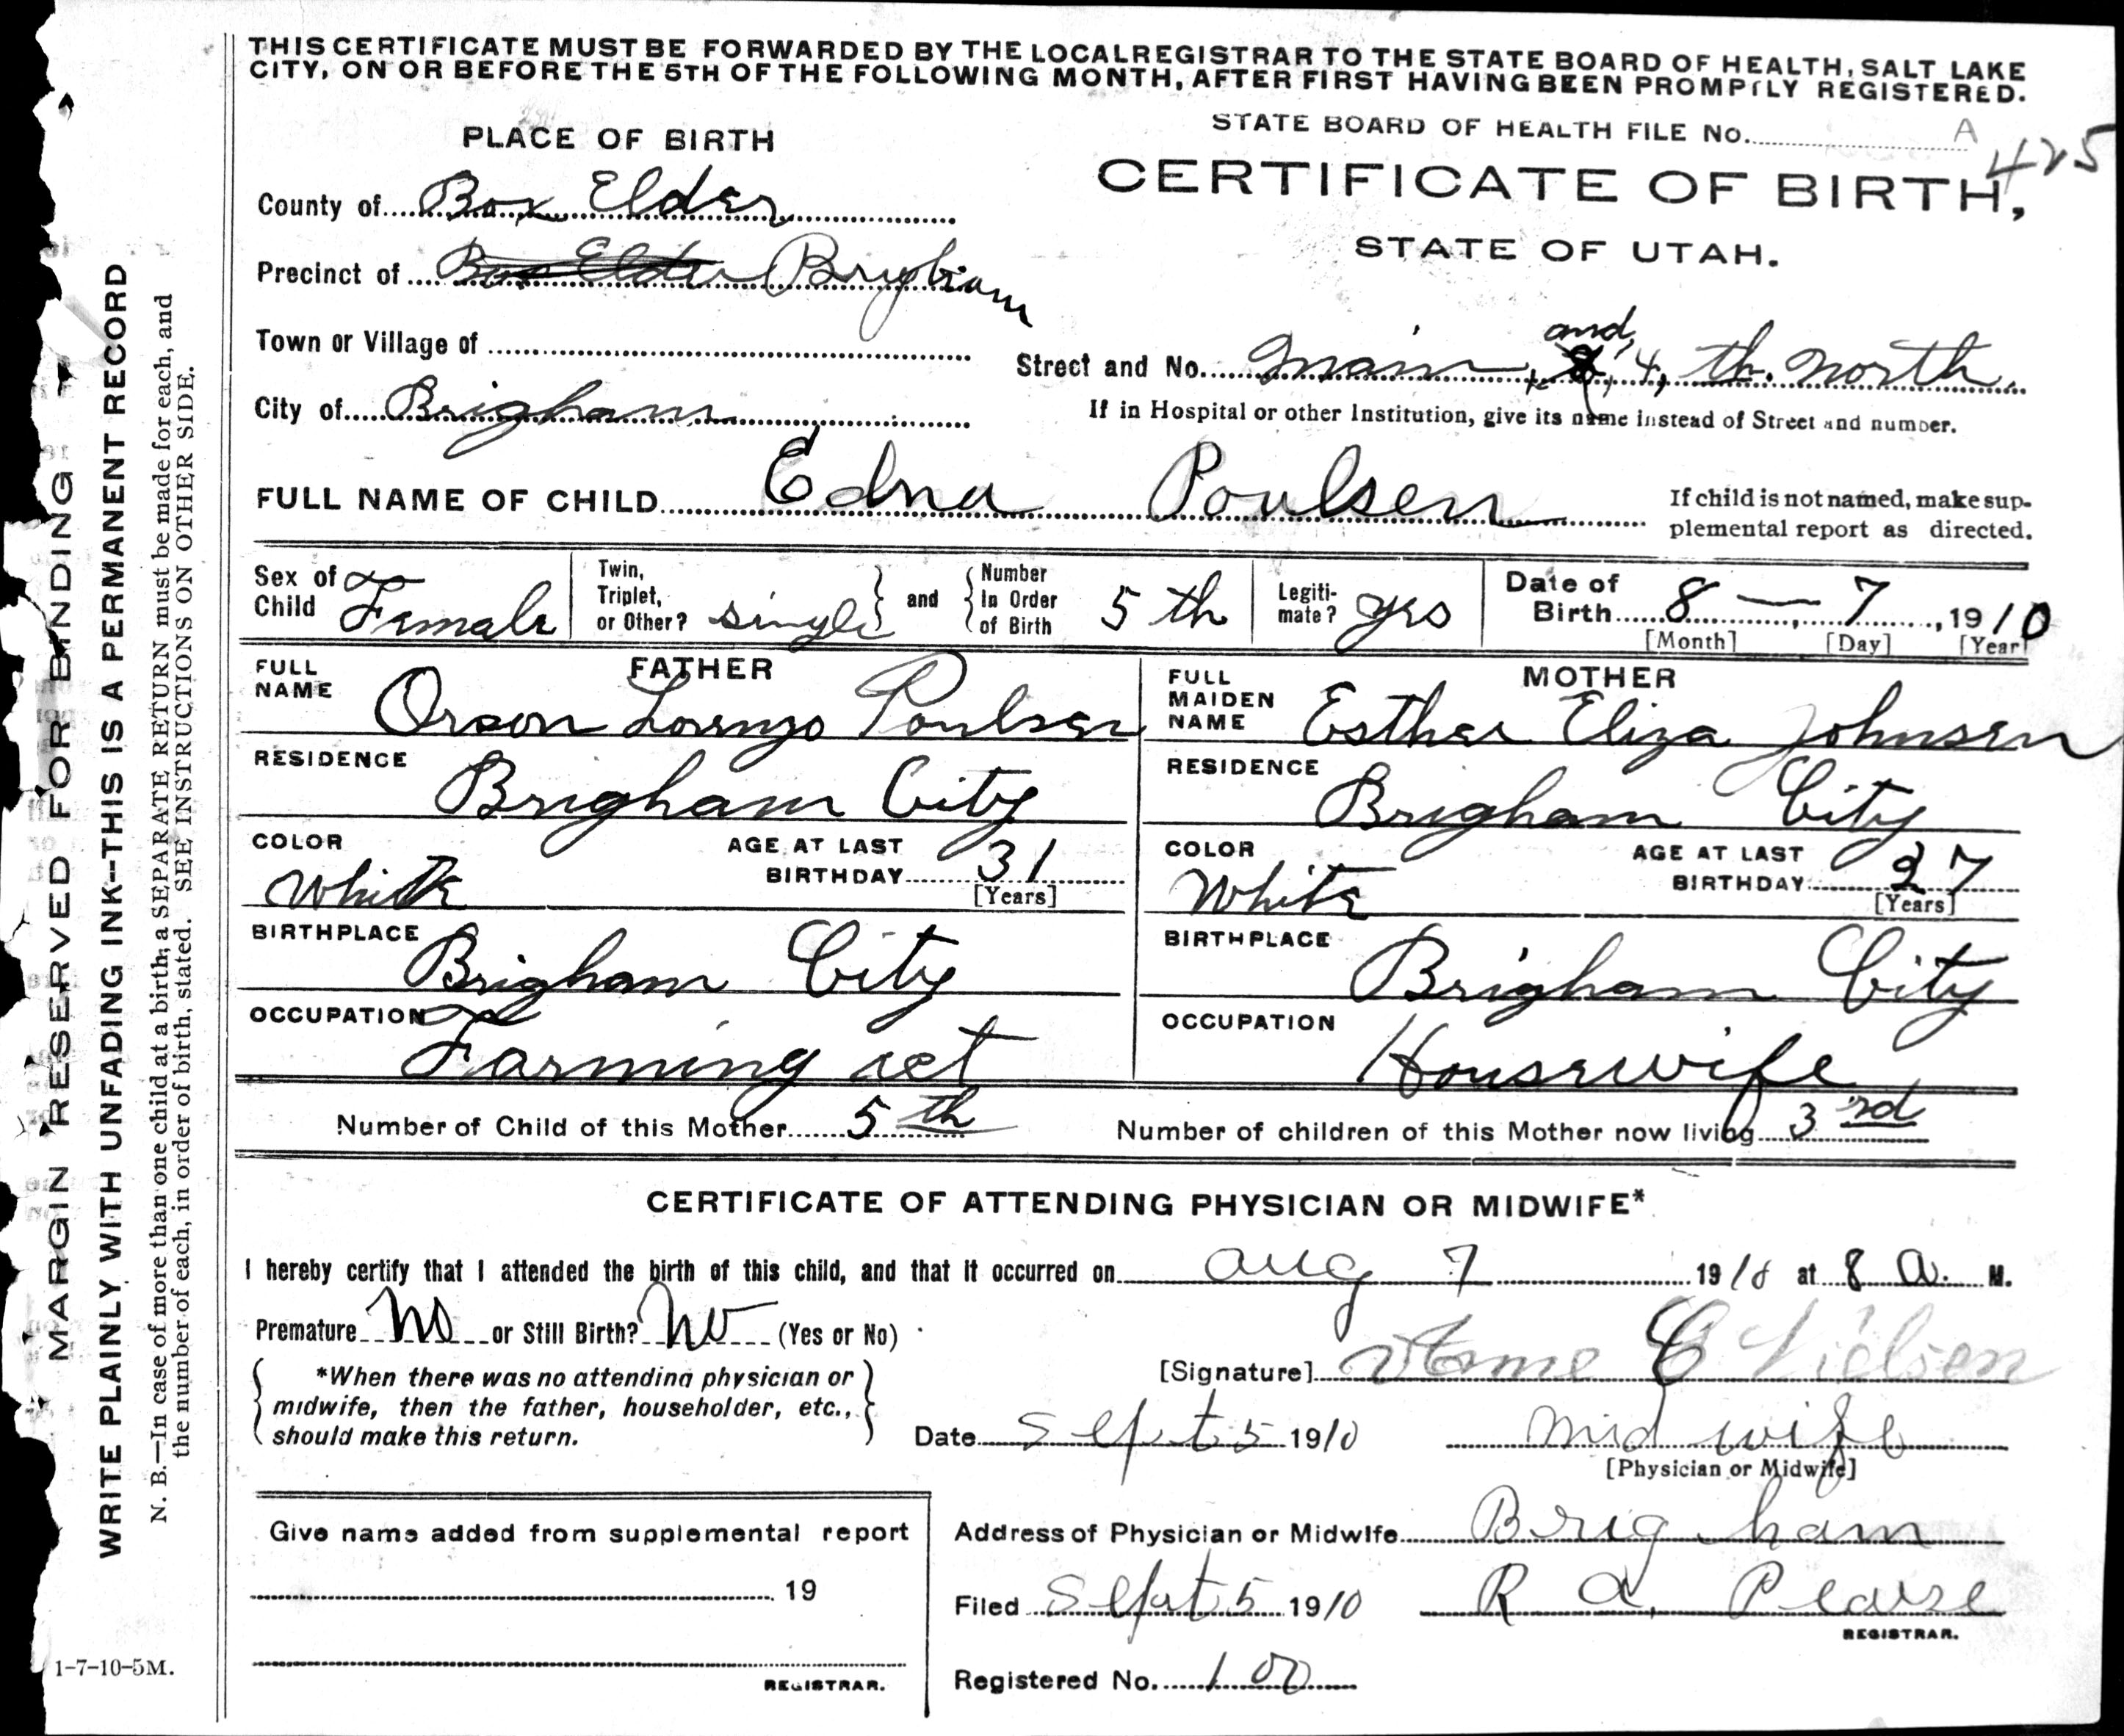 THIS CERTIFICATE MUST BE FORWARDED BY THE LOCAL REGISTRAR TO THE STATE BOARD OF HEALTH, SALT LAKE
CITY, ON OR BEFORE THE 5TH OF THE FOLLOWING MONTH, AFTER FIRST HAVING BEEN PROMPTLY REGISTERED.
STATE BOARD OF HEALTH FILE No. A 425
PLACE OF BIRTH
CERTIFICATE OF BIRTH,
STATE OF UTAH.
County of Box Elder
Precinct of Box Elder Brigham
Town or Village of
Street and No. Main, and 4, th. North
City of Brigham
If in Hospital or other Institution, give its name instead of Street and number.
FULL NAME OF CHILD Edna Poulsen
If child is not named, make sup-
plemental report as directed.
Sex of Child Female
Twin, Triplet, or Other? single and Number In Order of Birth 5 th
Legiti-mate? yes
Date of Birth 8 — 7, 1910
[Month] [Day] [Year]
FATHER
FULL NAME Orson Lorenzo Poulsen
RESIDENCE Brigham City
COLOR White
AGE AT LAST BIRTHDAY 31
[Years]
BIRTHPLACE Brigham City
OCCUPATION Farming ect
MOTHER
FULL MAIDEN NAME Esther Eliza Johnsen
RESIDENCE Brigham City
COLOR White
AGE AT LAST BIRTHDAY 27
[Years]
BIRTHPLACE Brigham City
OCCUPATION Housewife
Number of Child of this Mother 5 th
Number of children of this Mother now living 3 rd
CERTIFICATE OF ATTENDING PHYSICIAN OR MIDWIFE*
I hereby certify that I attended the birth of this child, and that it occurred on aug 7 1910 at 8 a. M.
Premature No or Still Birth? No (Yes or No)
*When there was no attending physician or
midwife, then the father, householder, etc.,
should make this return.
[Signature] C Nielsen
Date Sept 5 1910
mid wife
[Physician or Midwife]
Give name added from supplemental report
19
REGISTRAR.
Address of Physician or Midwife Brigham
Filed Sept 5 1910
R a. Pearse
REGISTRAR.
Registered No. 100
MARGIN RESERVED FOR BINDING
WRITE PLAINLY WITH UNFADING INK--THIS IS A PERMANENT RECORD
N. B.—In case of more than one child at a birth, a SEPARATE RETURN must be made for each, and
the number of each, in order of birth, stated. SEE INSTRUCTIONS ON OTHER SIDE.
1-7-10-5M.